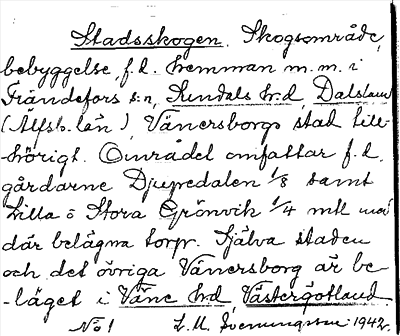 Stadsskogen. Skogsområde,
bebyggelse, f.d. hemman m.m. i
Frändefors s:n, Sundals hd, Dalsland
(Älfsb. län), Vänersborgs stad till-
hörigt. Området omfattar f.d.
gårdarne Djupedalen 1/8 samt
Lilla o Stora Grönvik 1/4 mtl med
där belägna torp. Själva staden
och det övriga Vänersborg är be-
-läget i Väne hd Västergötland
No 1 L. M. Svenungsson 1942.